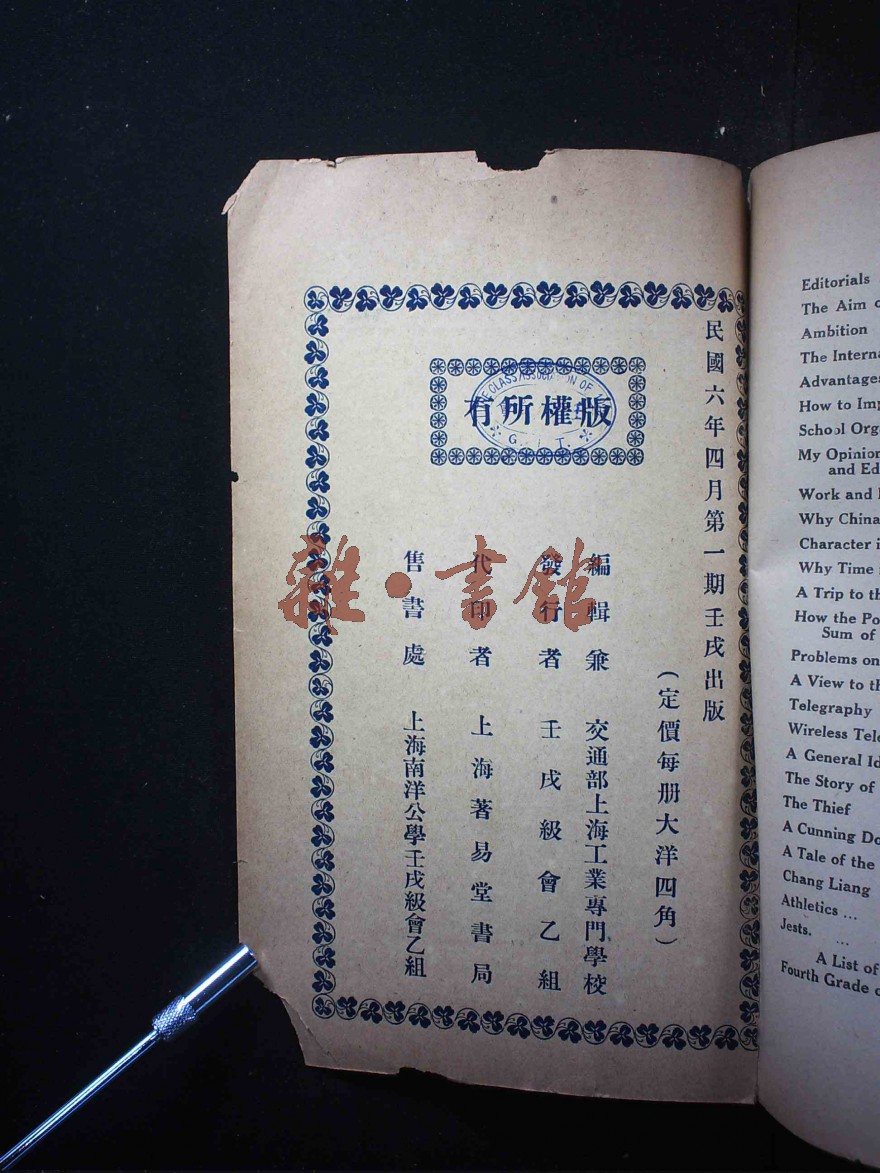 民國六年四月第一期壬戌出版
版權所有
CLASS ASSOCIATION OF
(定價每册大洋四角)
編輯兼 交通部上海工業專門學校
發行者 壬戌級會乙組
代印者 上海著易堂書局
售書處 上海南洋公學壬戌級會乙組
雜·書館
Editorials
The Aim
Ambition
The Interna
Advantages
How to Imp
School Orga
My Opinion
and Ed
Work and
Why China
Character i
Why Time
A Trip to th
How the Po
Sum of
Problems on
A View to th
Telegraphy
Wireless Tele
A General Id
The Story of
The Thief
A Cunning Do
A Tale of the
Chang Liang
Athletics ...
Jests. ...
A List of
Fourth Grade